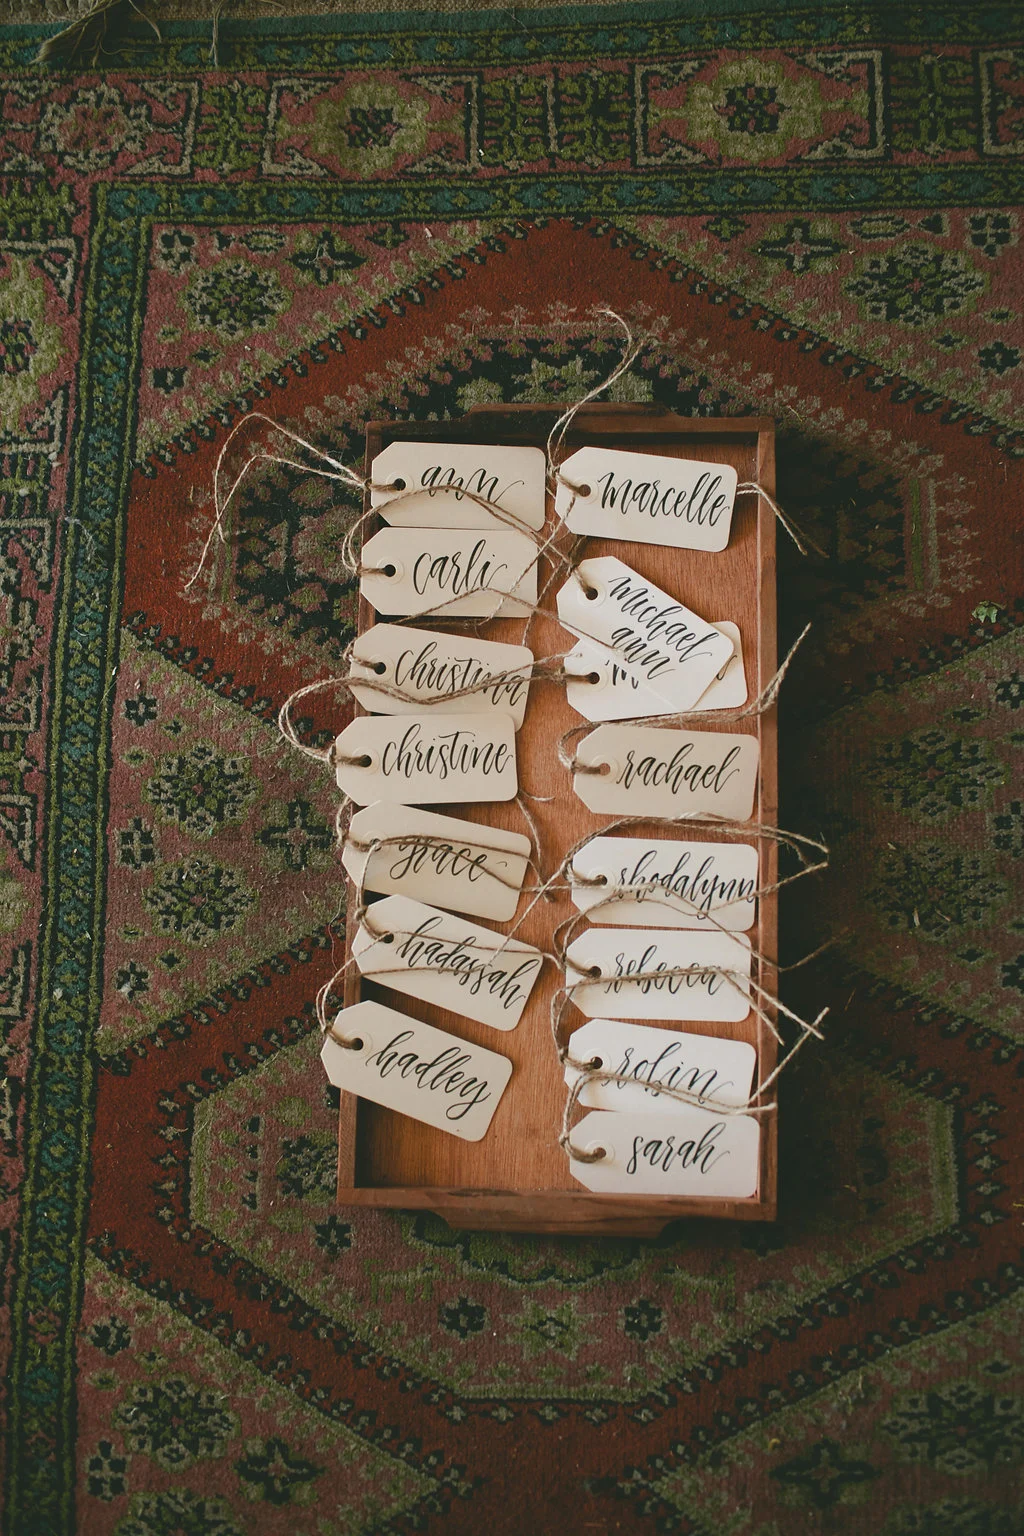 ann
carli
christina
christine
grace
hadassah
hadley
marcelle
michael
ann
rachael
rhodalynn
rebecca
robin
sarah